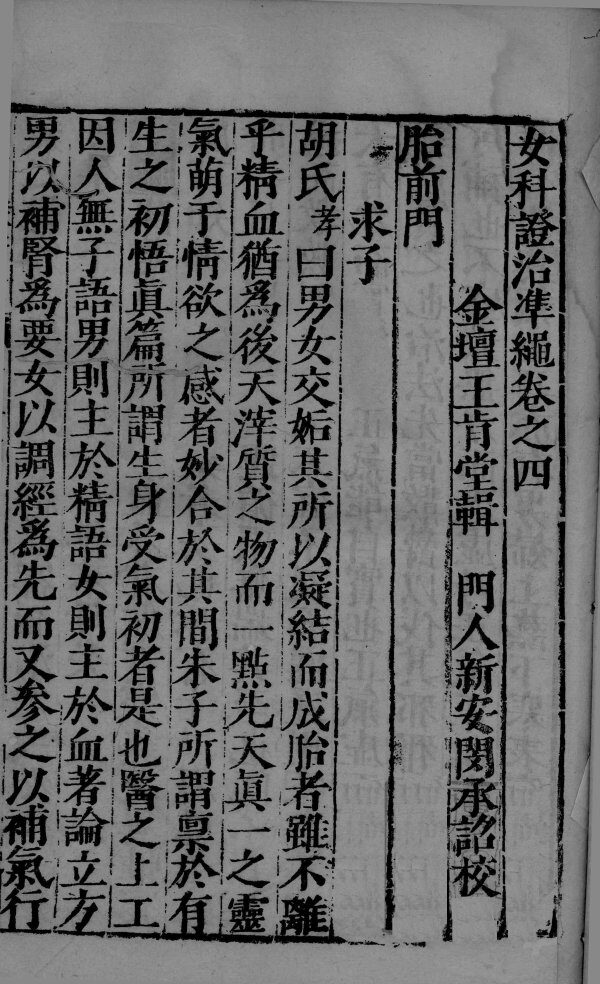 女科證治準繩卷之四
金壇王肯堂輯　門人新安閔承詔校
胎前門
求子
胡氏孝曰男女交姤其所以凝結而成胎者雖不離
乎精血猶為後天滓質之物而一點先天眞一之靈
氣萌于情欲之感者妙合於其間朱子所謂禀於有
生之初悟眞篇所謂生身受氣初者是也醫之上工
因人無子語男則主於精語女則主於血著論立方
男以補腎為要女以調經為先而又參之以補氣行